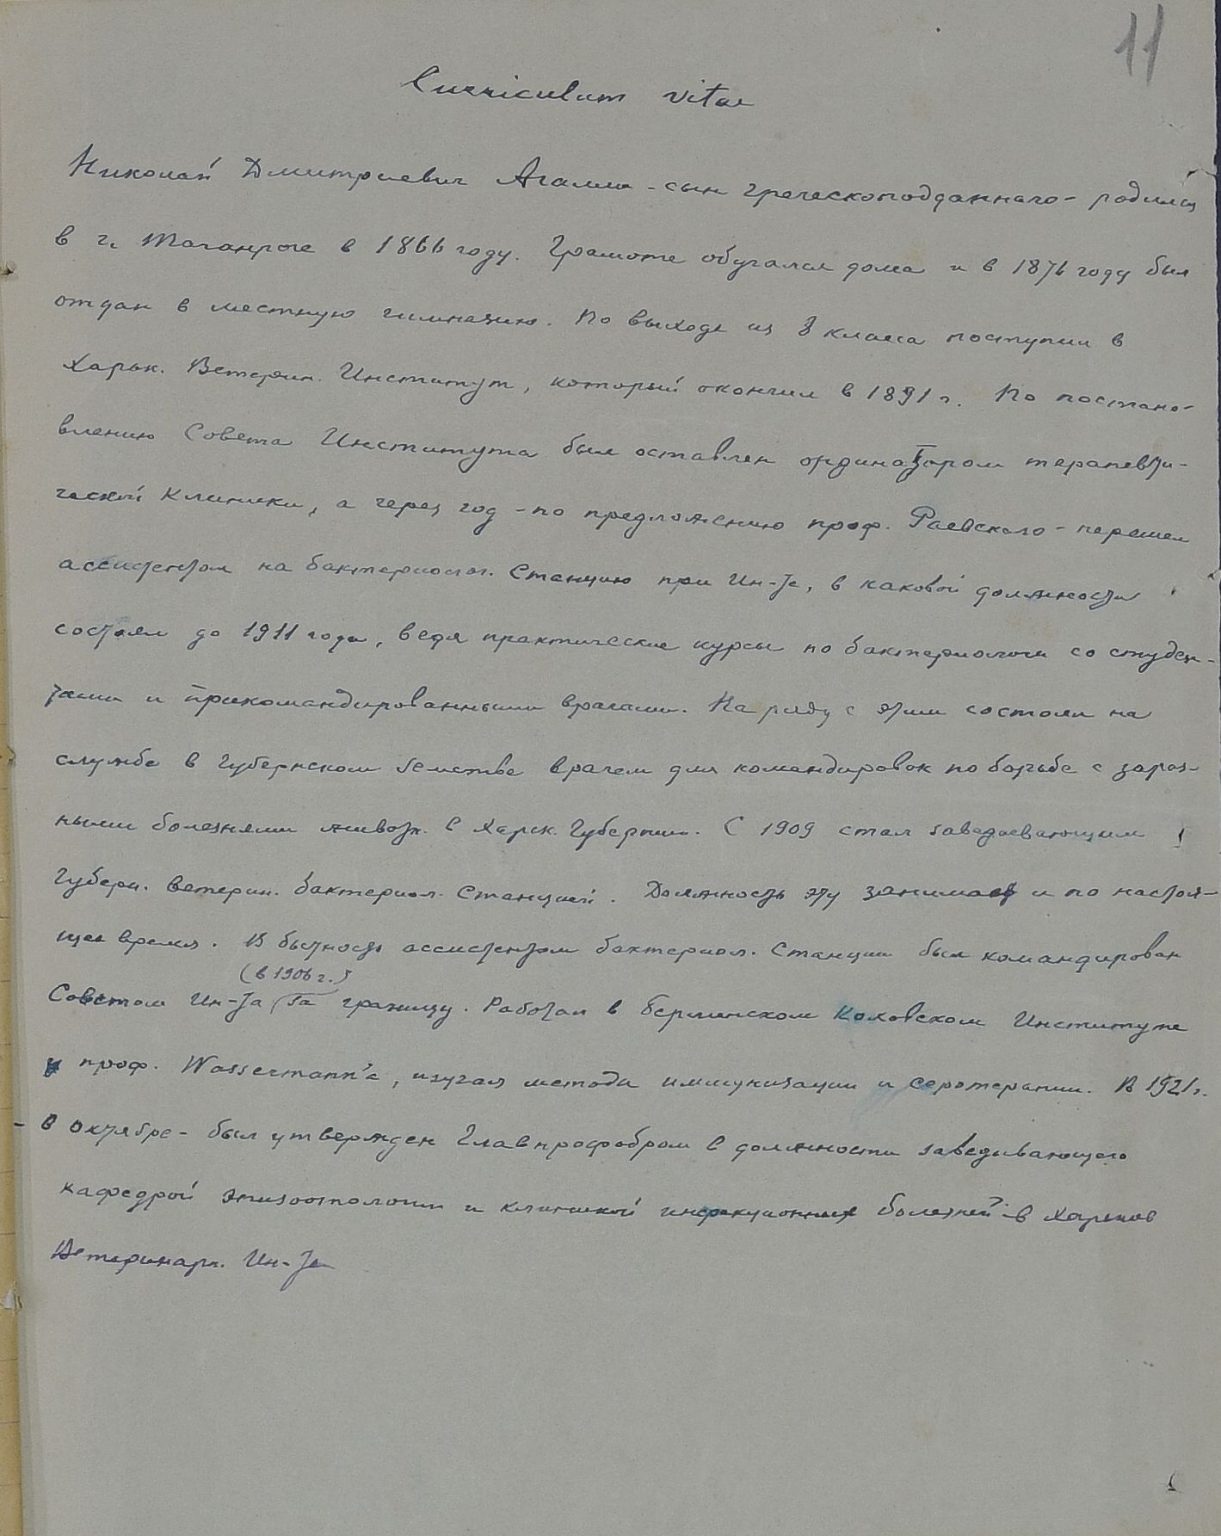 11
Curriculum vitae
Николай Дмитриевич Агалли - сын греческоподданнаго - родился
в г. Таганроге в 1866 году. Грамоте обучался дома и в 1876 году был
отдан в местную гимназию. По выходе из 8 класса поступил в
Харьк. Ветерин. Институт, который окончил в 1891 г. По постано-
влению Совета Института был оставлен ординатором терапевти-
ческой клиники, а через год - по предложению проф. Раевского - перешел
ассистентом на бактериолог. Станцию при Ин-те, в каковой должности
состоял до 1911 года, ведя практические курсы по бактериологии со студен-
тами и прикомандированными врачами. На ряду с этим состоял на
службе в Губернском Земстве врачем для командировок по борьбе с зараз-
ными болезнями живот. в Харьк. Губернии. С 1909 стал заведаевающим
Губерн. ветерин. бактериол. Станцией. Должность эту занимает и по настоя-
щее время. В бытность ассистентом бактериол. Станции был командирован
(в 1906 г.)
Советом Ин-та за границу. Работал в Берлинском Коховском Институте
у проф. Wassermann'а, изучая методы иммунизации и серотерапии. В 1921 г.
в октябре - был утвержден Главпрофобром в должности заведывающего
кафедрой эпизоотологии и клиникой инфекционных болезней в Харьков
Ветеринарн. Ин-те